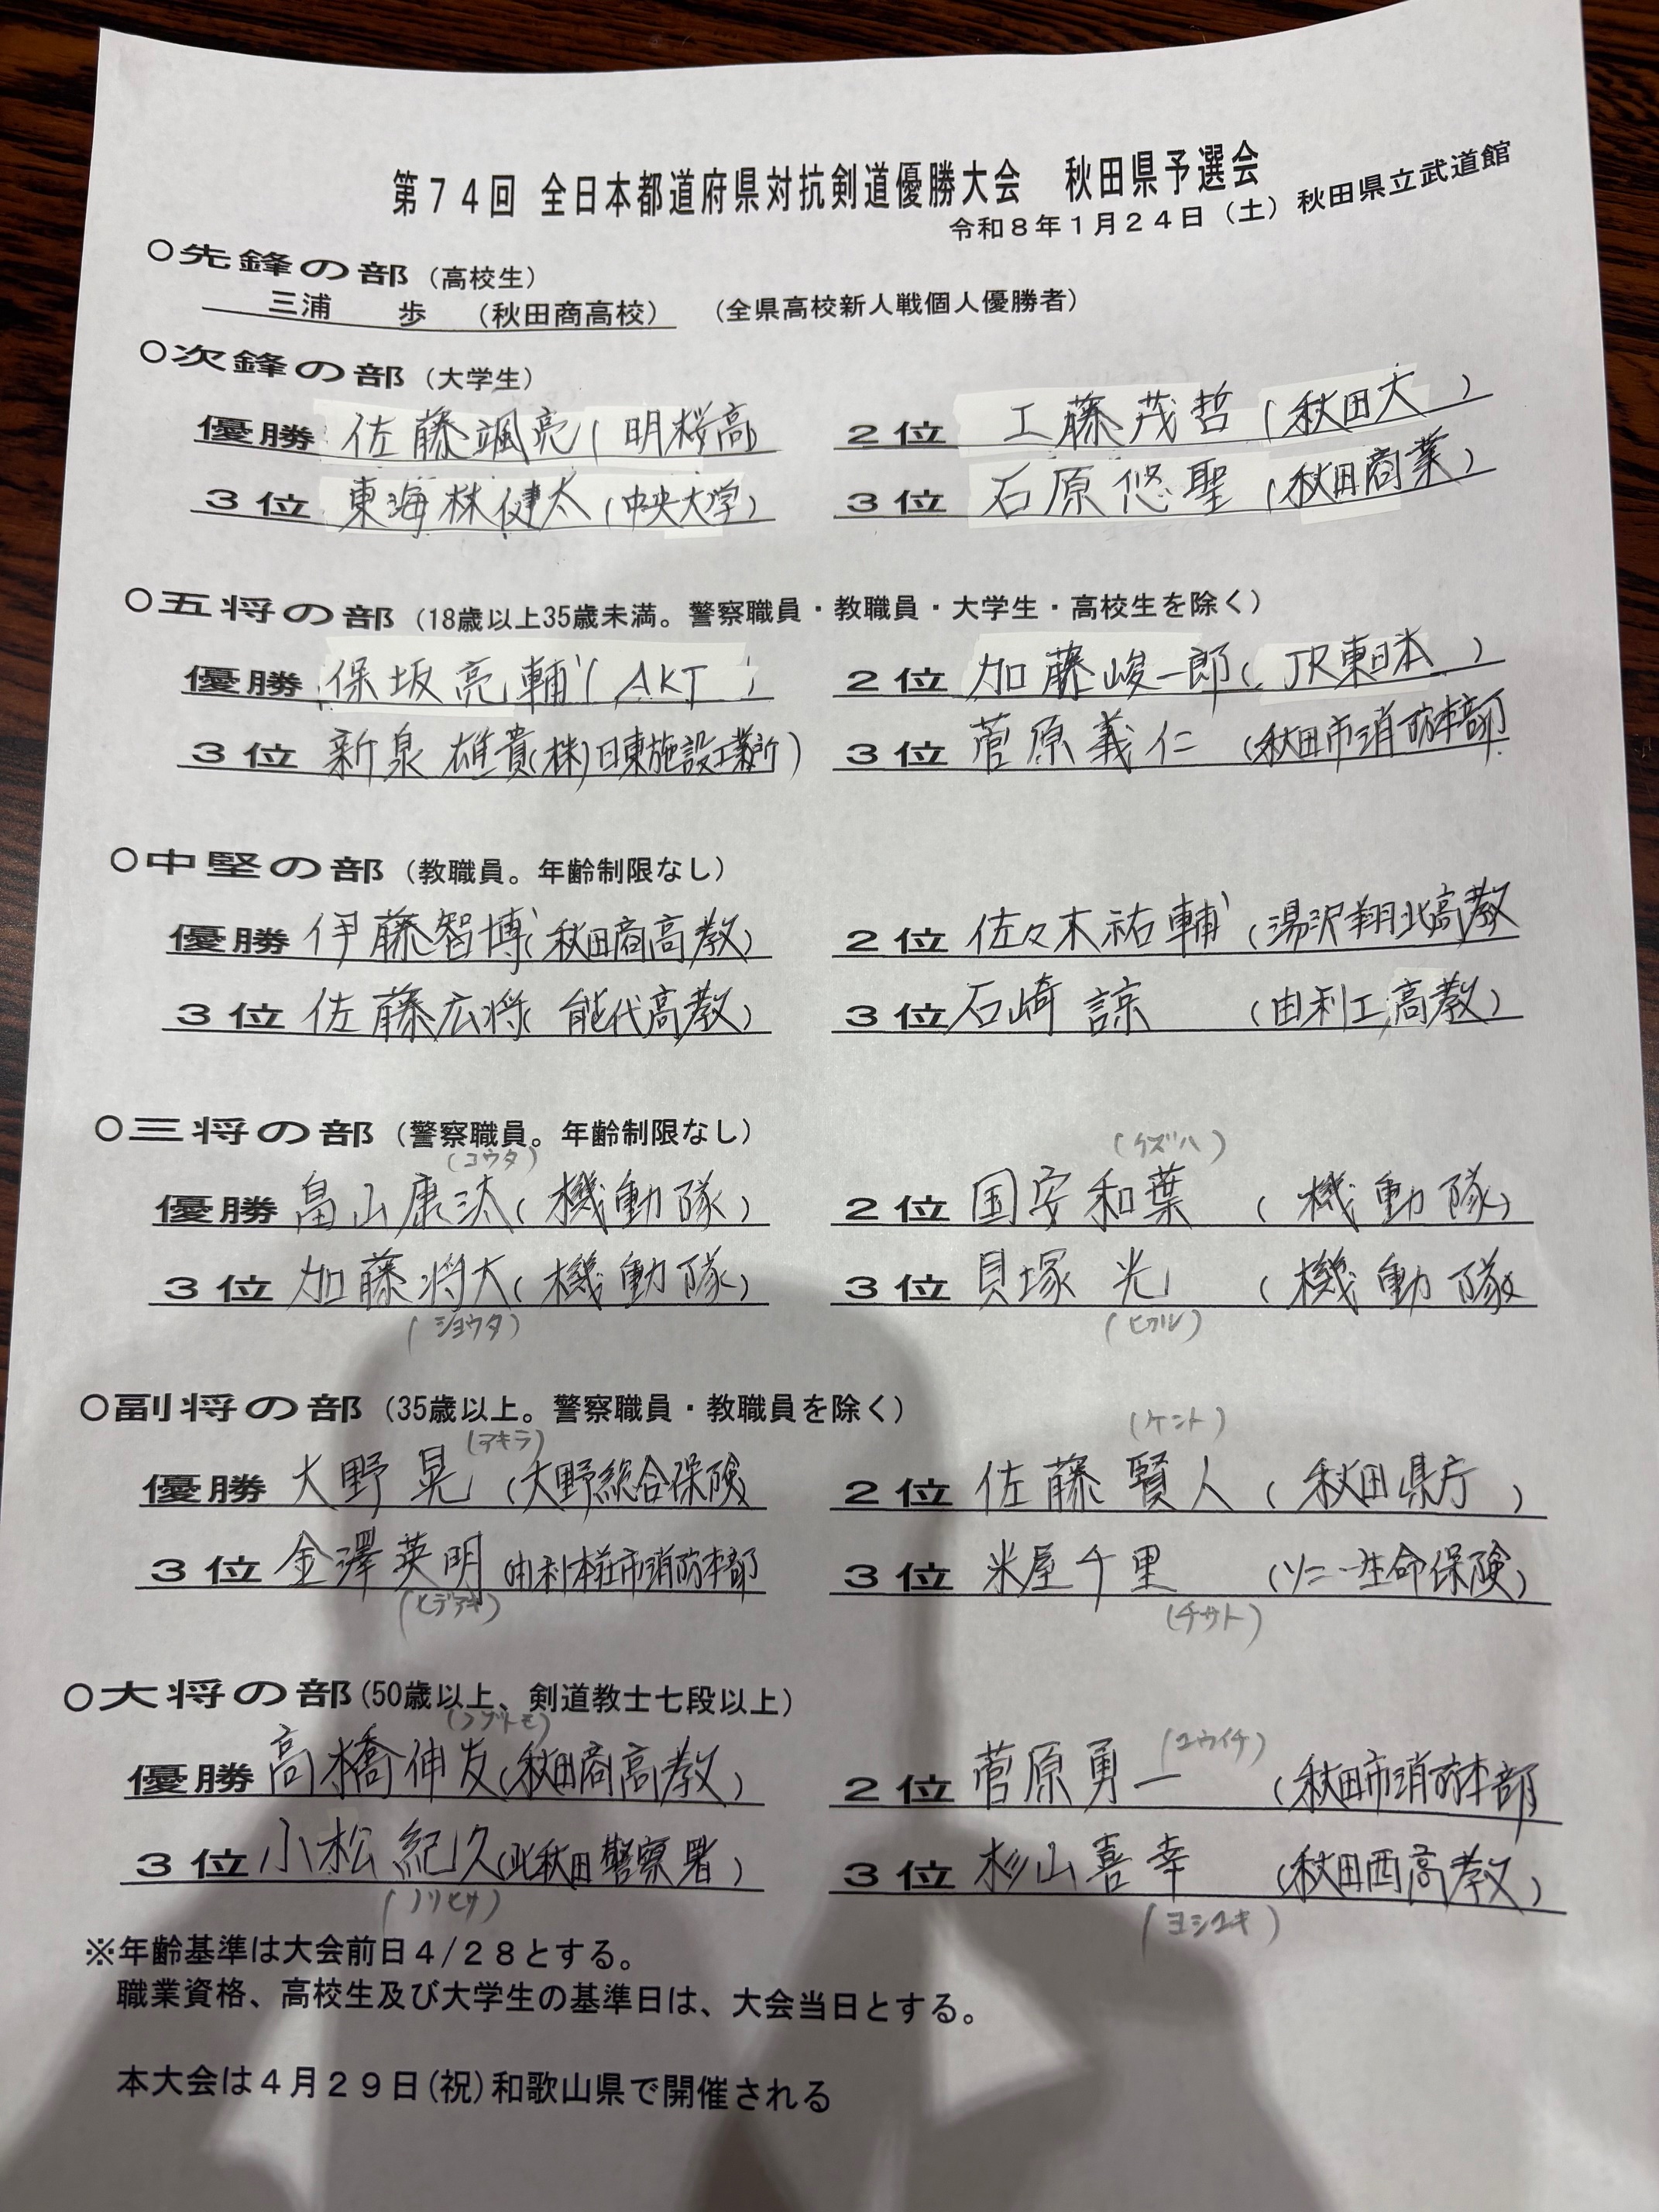 第74回 全日本都道府県対抗剣道優勝大会 秋田県予選会
令和8年1月24日（土）秋田県立武道館
○先鋒の部（高校生）
三浦 歩 （秋田商高校） （全県高校新人戦個人優勝者）
○次鋒の部（大学生）
優勝 佐藤颯亮（明桜高 2位 工藤茂哲（秋田大）
3位 東海林健太（中央大学） 3位 石原悠聖（秋田商業）
○五将の部（18歳以上35歳未満。警察職員・教職員・大学生・高校生を除く）
優勝 保坂亮輔（AKT） 2位 加藤峻一郎（JR東日本）
3位 新泉雄貴（株）日東施設工業所） 3位 菅原義仁（秋田市消防本部）
○中堅の部（教職員。年齢制限なし）
優勝 伊藤智博（秋田商高教） 2位 佐々木祐輔（湯沢翔北高教
3位 佐藤広将（能代高教） 3位 石崎諒（由利工高教）
○三将の部（警察職員。年齢制限なし）
（コウタ） （カズハ）
優勝 畠山康汰（機動隊） 2位 国安和葉（機動隊）
3位 加藤将大（機動隊） 3位 貝塚光（機動隊
（ショウタ） （ヒカル）
○副将の部（35歳以上。警察職員・教職員を除く）
（アキラ） （ケント）
優勝 大野晃（大野総合保険 2位 佐藤賢人（秋田県庁）
3位 金澤英明（由利本荘市消防本部 3位 米屋千里（ソニー生命保険）
（ヒデアキ） （チサト）
○大将の部（50歳以上、剣道教士七段以上）
（ノブトモ） （ユウイチ）
優勝 高橋伸友（秋田商高教） 2位 菅原勇一（秋田市消防本部）
3位 小松紀久（北秋田警察署） 3位 杉山喜幸（秋田西高教）
（ノリヒサ） （ヨシユキ）
※年齢基準は大会前日4/28とする。
職業資格、高校生及び大学生の基準日は、大会当日とする。
本大会は4月29日(祝)和歌山県で開催される